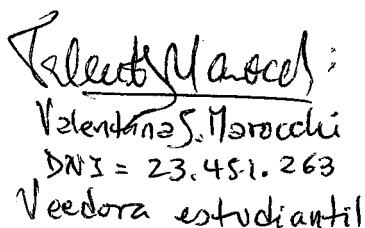 Valentina S. Marocchi
DNI = 23.451.263
Veedora estudiantil